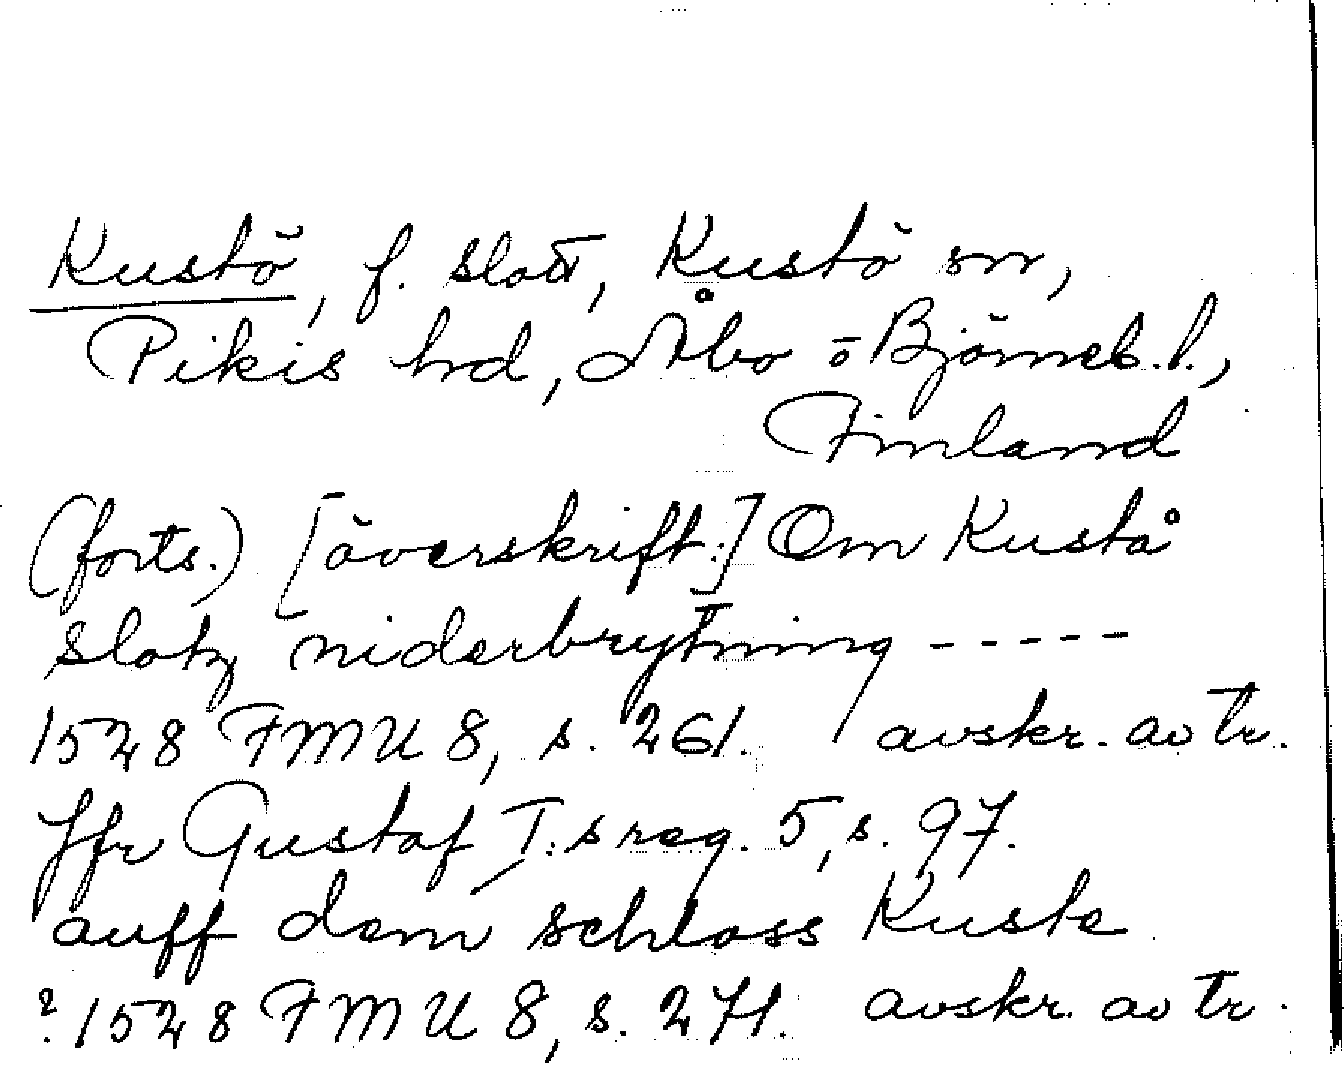 Kustö, f. slott, Kustö sn,
Pikis hd, Åbo o Björneb. l.,
Finland
(forts.) [överskrift:] Om Kustå
slotz niderbrytning -----
1528 FMU 8, s. 261. avskr. av tr.
Jfr Gustaf I:s reg. 5, s. 97.
auff dem schloss Kuste
? 1528 FMU 8, s. 271. avskr. av tr.